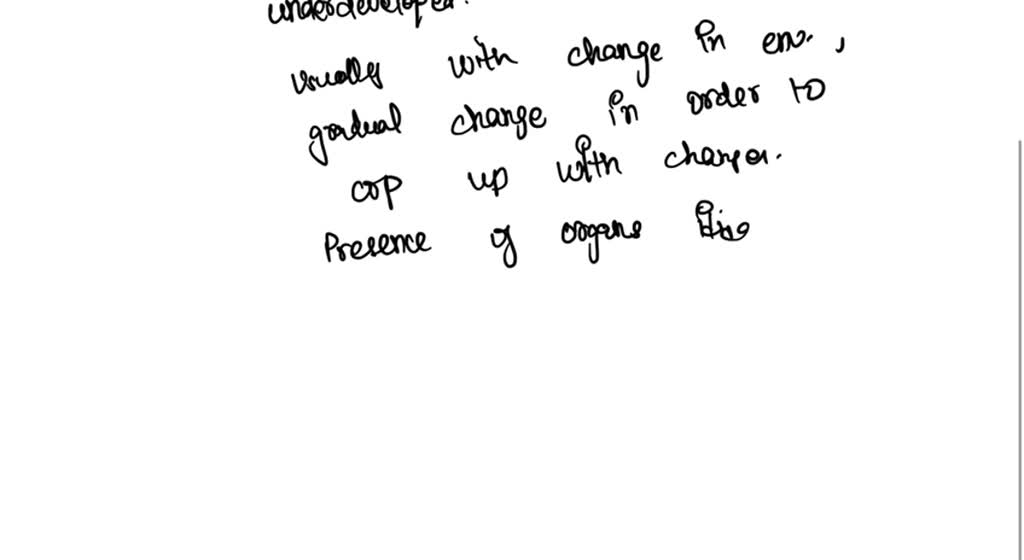 underdeveloped.
usually with change in env. ,
gradual change in order to
cop up with changes.
Presence of organs